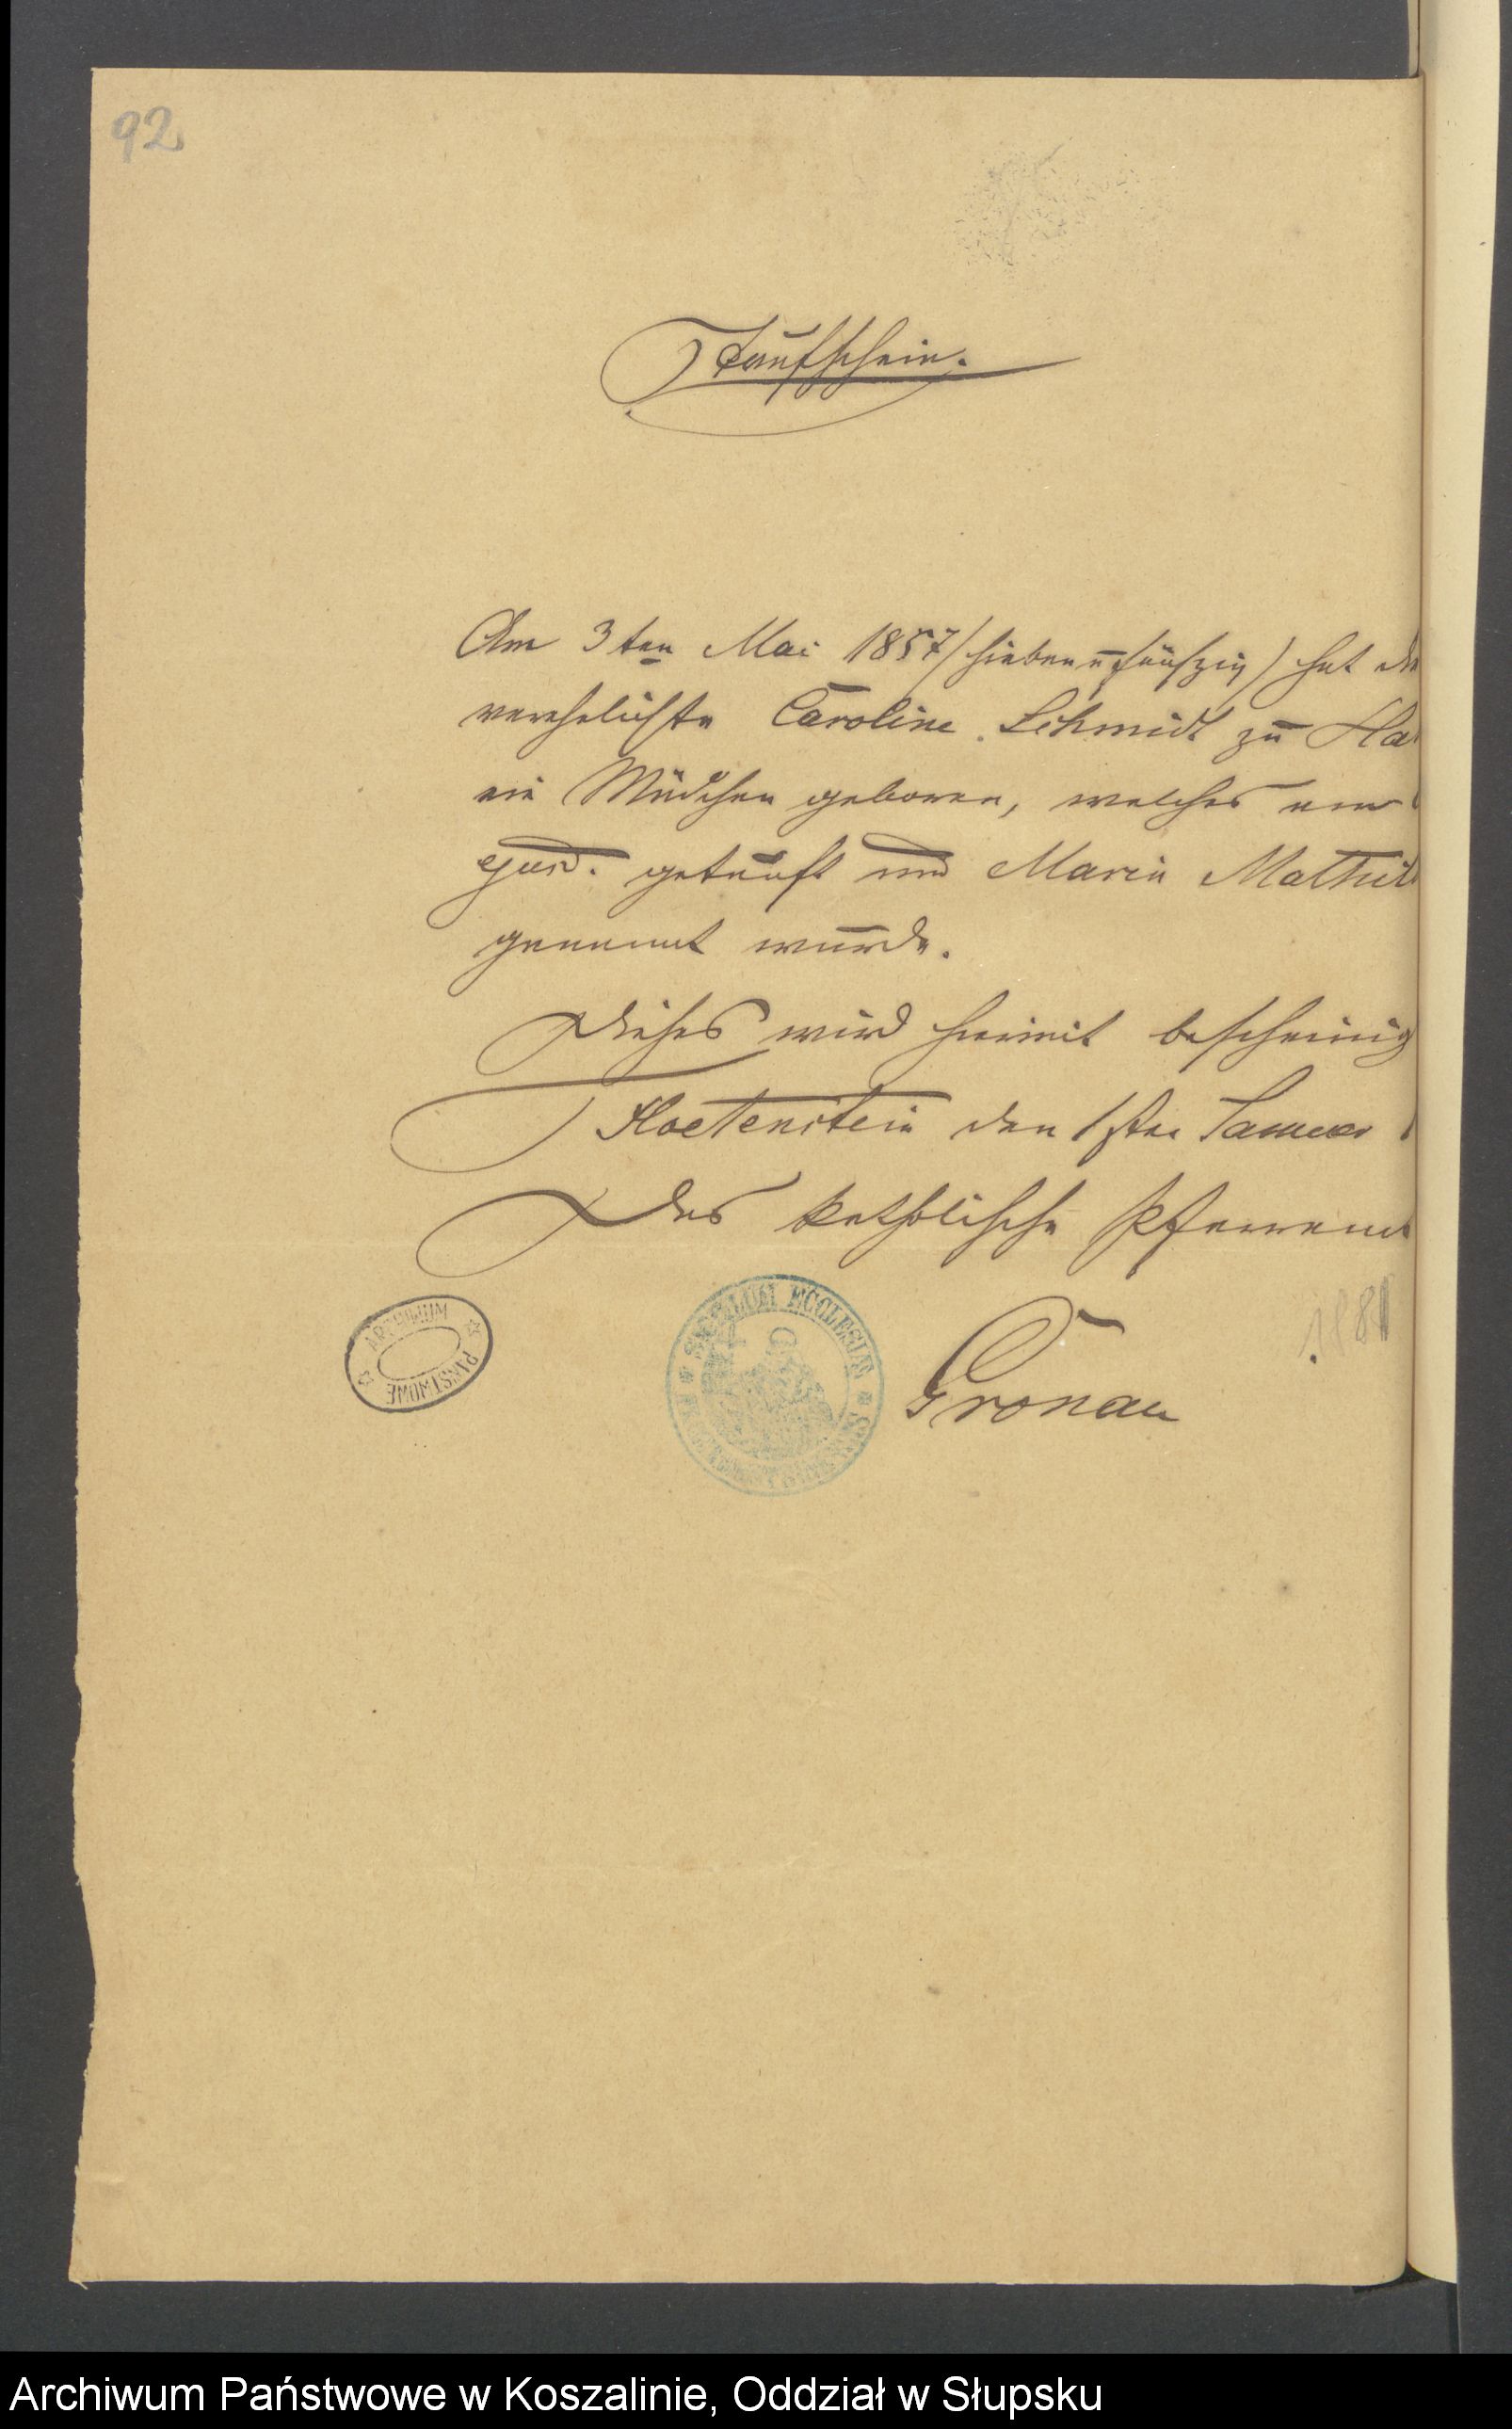 92
Taufschein.
Am 3ten Mai 1857 (sieben u fünfzig) hat die
verehelichte Caroline Schmidt zu Ha
ein Mädchen geboren, welches am
ejusd. getauft und Maria Mathil
genannt wurde.
Dieses wird hiermit bescheinig
Floetenstein den 1sten Januar
Das katholische Pfarramt
1881
Gronau
ARCHIWUM PAŃSTWOWE
SIGILLUM ECCLESIAE
Archiwum Państwowe w Koszalinie, Oddział w Słupsku